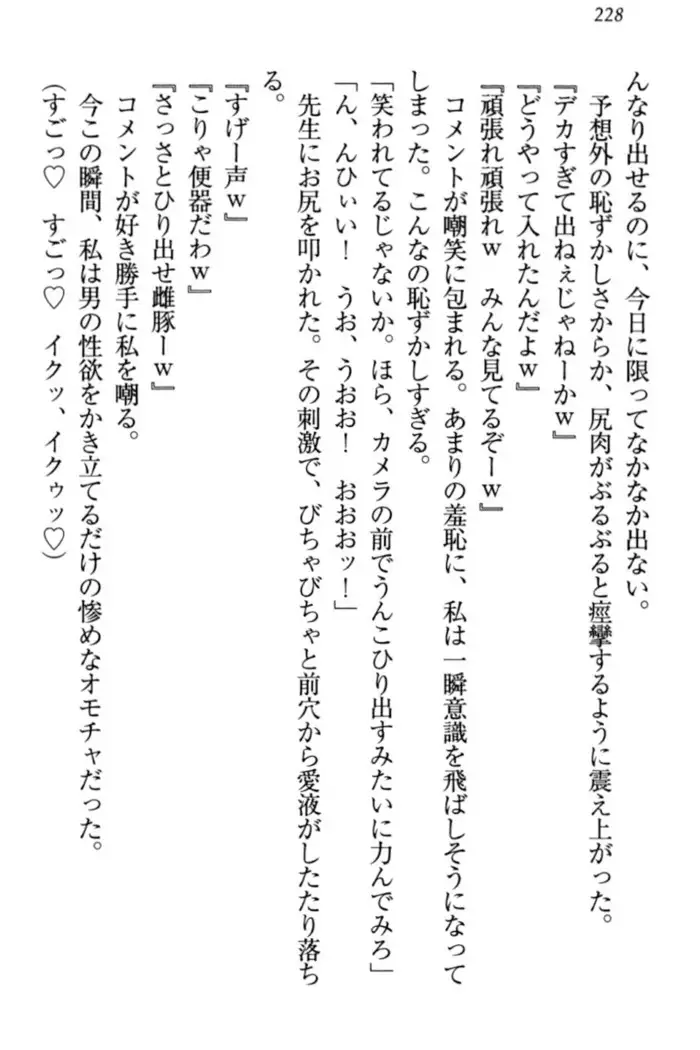 228
んなり出せるのに、今日に限ってなかなか出ない。
予想外の恥ずかしさからか、尻肉がぶるぶると痙攣するように震え上がった。
『デカすぎて出ねぇじゃねーかｗ』
『どうやって入れたんだよｗ』
『頑張れ頑張れｗ　みんな見てるぞーｗ』
コメントが嘲笑に包まれる。あまりの羞恥に、私は一瞬意識を飛ばしそうになって
しまった。こんなの恥ずかしすぎる。
「笑われてるじゃないか。ほら、カメラの前でうんこひり出すみたいに力んでみろ」
「ん、んひぃい！　うお、うおお！　おおおッ！」
先生にお尻を叩かれた。その刺激で、びちゃびちゃと前穴から愛液がしたたり落ち
る。
『すげー声ｗ』
『こりゃ便器だわｗ』
『さっさとひり出せ雌豚ーｗ』
コメントが好き勝手に私を嘲る。
今この瞬間、私は男の性欲をかき立てるだけの惨めなオモチャだった。
（すごっ♡　すごっ♡　イクッ、イクゥッ♡）